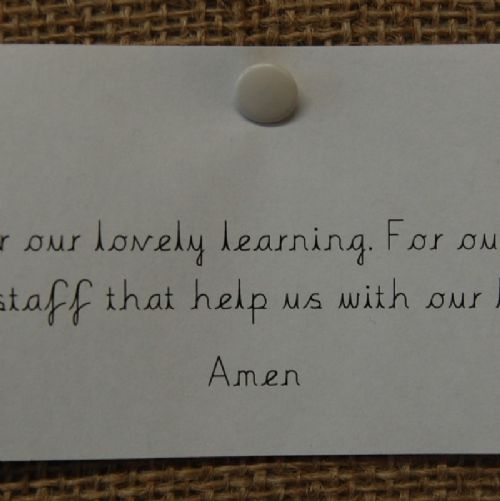 r our lovely learning. For ou
staff that help us with our l
Amen